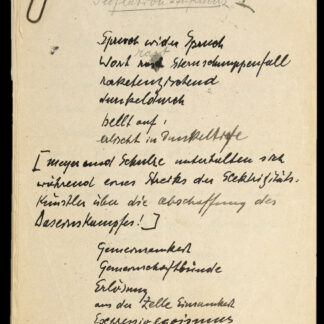 Spruch wider Spruch
Wort rast Sternschnuppenfall
raketenzischend
dunkeldurch
hellt auf!
erlischt in Dunkeltiefe
[Meyer und Schulze unterhalten sich
während eines Streiks der Elektrizitäts-
Künstler über die Abschaffung des
Daseinskampfes!]
Gemeinsamkeit
Gemeinschaftbünde
Erlösung
aus der Zelle Einsamkeit